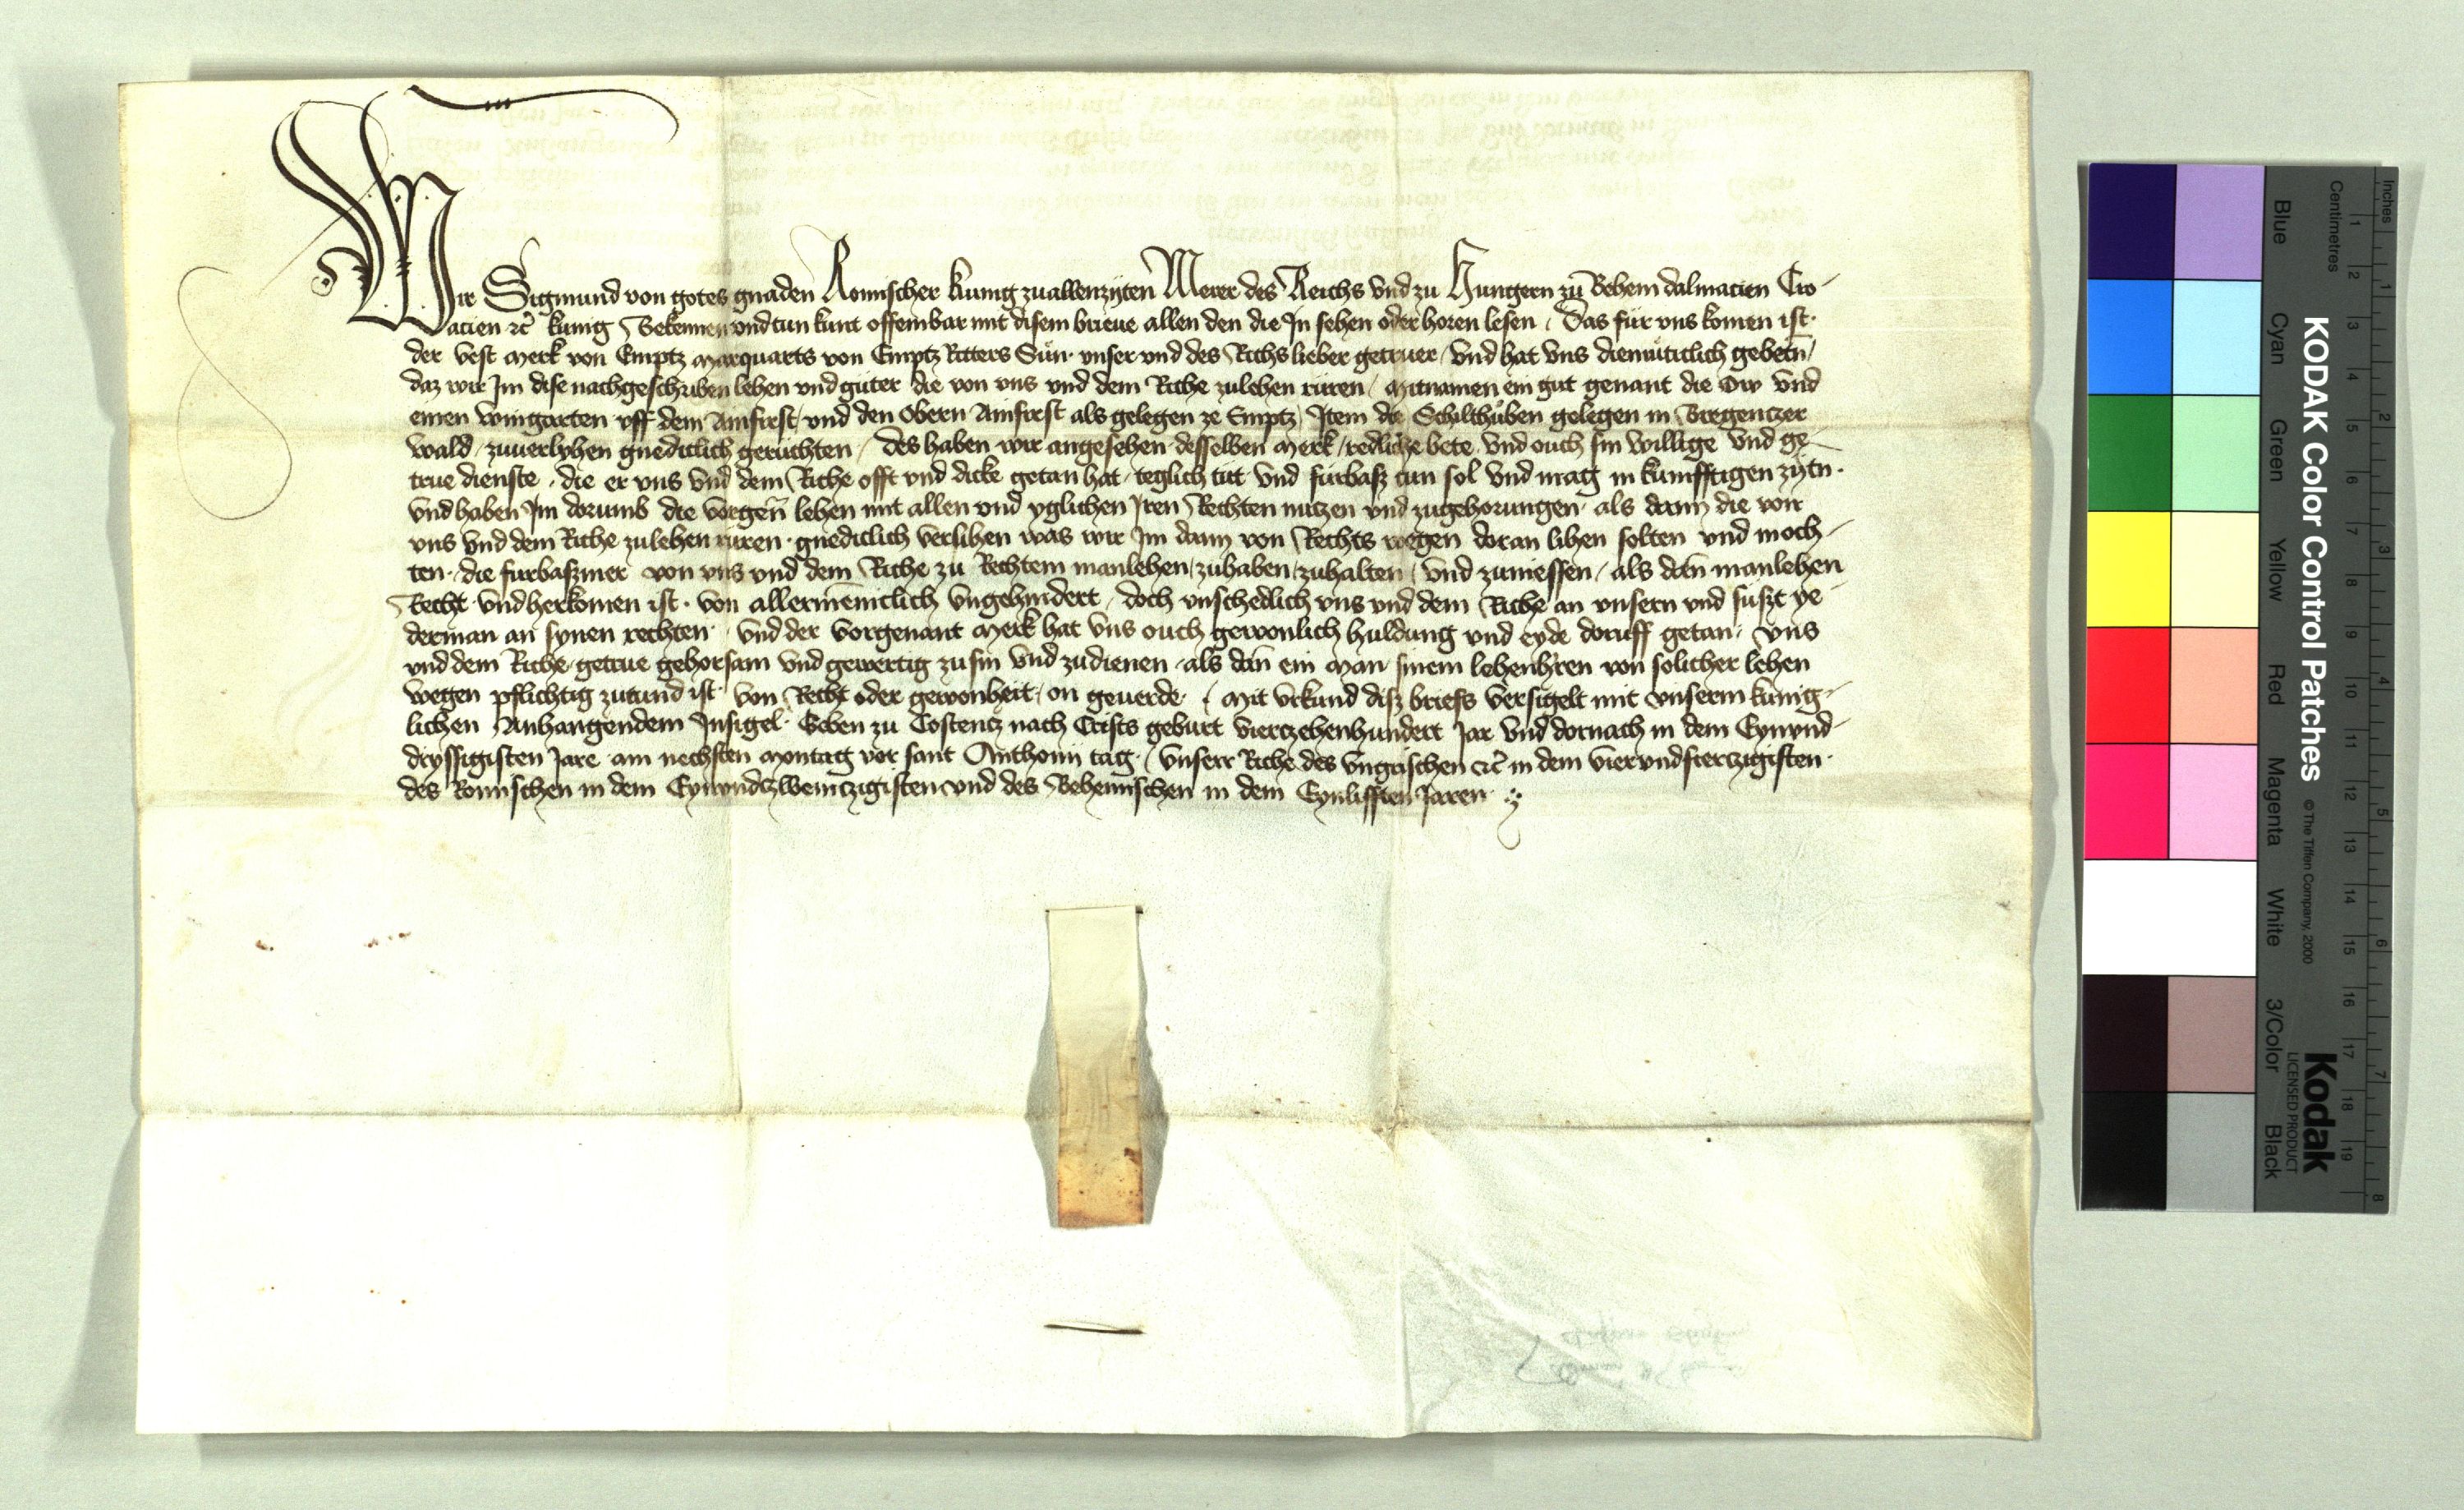 Wir Sigmund von gotes gnaden Romischer kunig zuallenzyten Merer des Reichs vnd zu Hungern zu Behem dalmacien Cro-
acien etc kunig Bekennen vnd tun kunt offembar mit disem brieue allen den die In sehen oder horen lesen / Das fur vns komen ist
der vest Merk von Emptz Marquarts von Emptz Ritters Sun vnser vnd des Richs lieber getruer / vnd hat vns diemuticlich gebetn /
daz wir Im dise nachgeschriben lehen vnd guter die von vns vnd dem Riche zulehen ruren / Mitnamen ein gut genant die Ow vnd
einen wingarten vff dem Amfirst / vnd den Obern Amfirst als gelegen ze Emptz / Item die Schilthuben gelegen in Bregentzer
wald / zuuerlyhen gnediclich geruchten / Des haben wir angesehen desselben Merk / redliche bete vnd ouch sin willige vnd ge-
true dienste / die er vns vnd dem Riche offt vnd dicke getan hat / teglich tut vnd furbaß tun sol vnd mag in kunfftigen zytn
Vnd haben Im dorumb die vorgen lehen mit allen vnd yglichen Iren Rechten nutzen vnd zugehorungen als dann die von
vns vnd dem Riche zulehen ruren gnediclich verlihen was wir Im dann von Rechts wegen doran lihen solten vnd moch-
ten / die furbaßmer von vns vnd dem Riche zu Rechtem manlehen / zuhaben / zuhalten / vnd zuniessen / als dan manlehen
Recht vnd herkomen ist von allermeniclich vngehindert / doch vnschedlich vns vnd dem Riche an vnsern vnd sußt ye-
derman an synen rechten / vnd der vorgenant Merk hat vns ouch gewonlich huldung vnd eyde doruff getan / vns
vnd dem Riche getrue gehorsam vnd gewertig zusin vnd zudienen als dan ein man sinem lehenhren von solicher lehen
wegen pflichtig zutund ist von Recht oder gewonheit / on geuerde / Mit vrkund diß briefs versigelt mit vnserm kunig-
lichen Anhangendem Insigel Geben zu Costencz nach Crists geburt viertzehenhundert Jar vnd dornach in dem Eynvnd-
dryssigisten Jare am nechsten Montag vor sant Anthonii tag / vnserr Riche des vngrischen etc in dem viervndfiertzigisten
des Romischen in dem Eynvndtzweintzigisten vnd des Behemischen in dem Eynlifften Jaren
KODAK Color Control Patches
© The Tiffen Company, 2000
Kodak
LICENSED PRODUCT
Inches 1 2 3 4 5 6 7 8
Centimetres 1 2 3 4 5 6 7 8 9 10 11 12 13 14 15 16 17 18 19
Blue Cyan Green Yellow Red Magenta White 3/Color Black